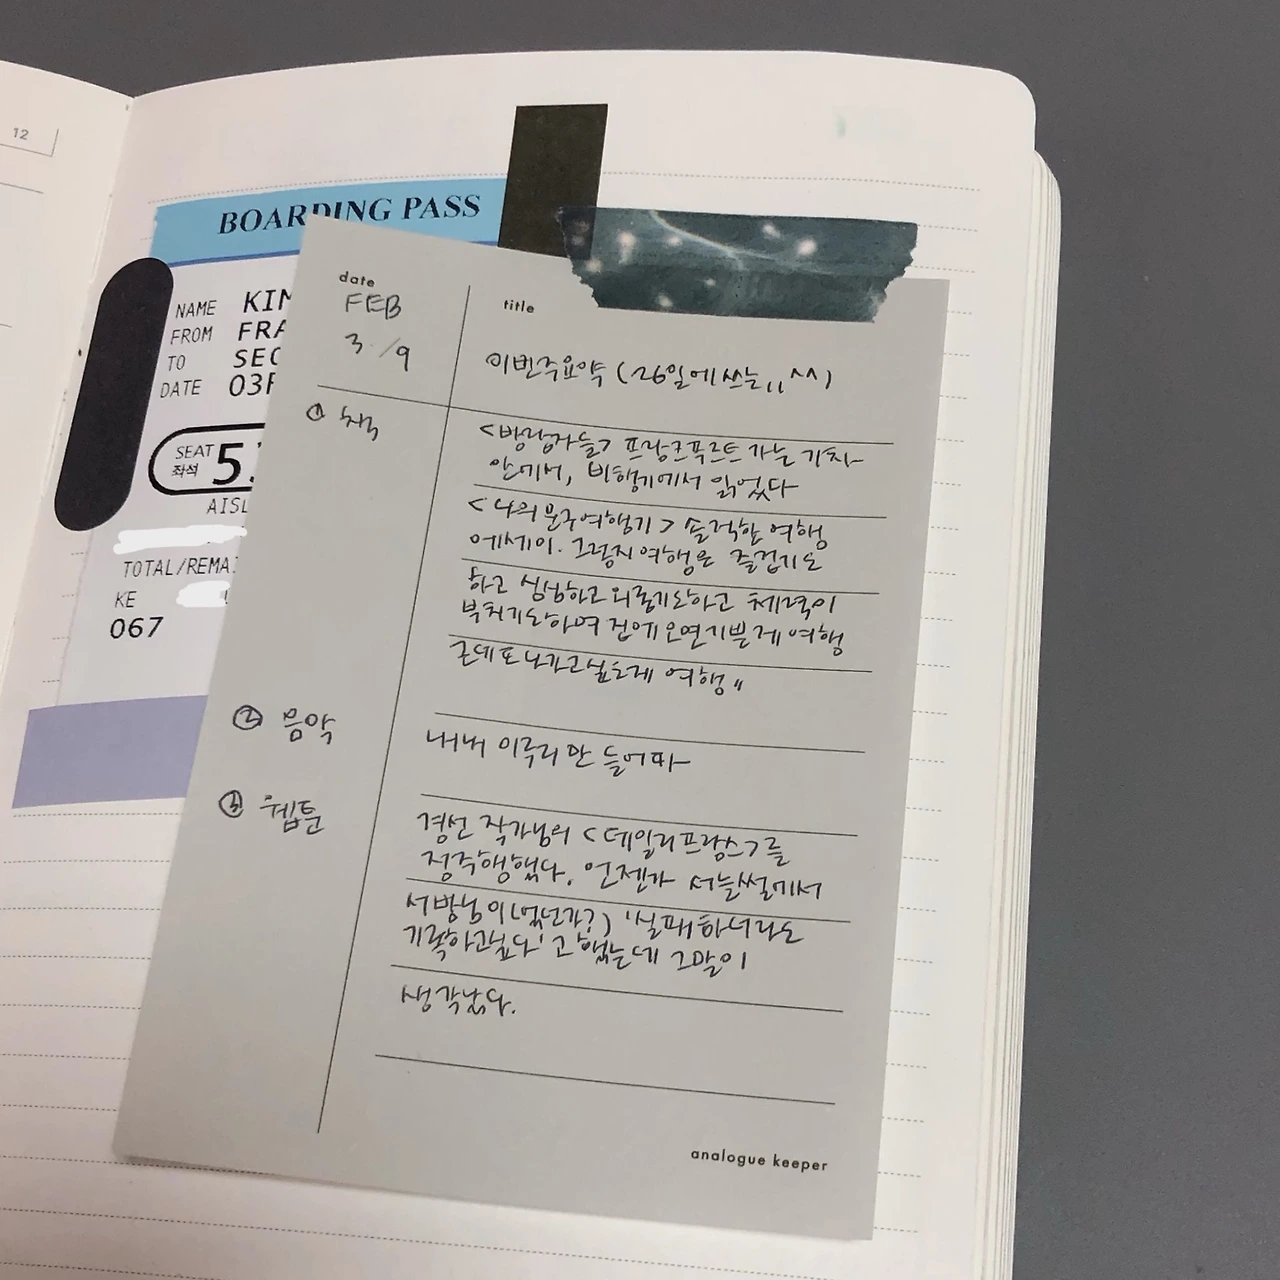 12
BOARDING PASS
NAME KIM
FROM FRA
TO SEO
DATE 03F
SEAT 좌석 5
AISL
TOTAL/REMAI
KE
067
date
FEB
3. /9
title
이번주요약 (26일에쓰는,, ^^)
① 책
<방랑자들> 프랑크푸르트 가는 기차
안에서, 비행기에서 읽었다
<나의 문구 여행기> 솔직한 여행
에세이. 그렇지 여행은 즐겁기도
하고 심심하고 외롭기도하고 체력이
부치기도하여 집에오면기쁜게 여행
근데또나가고싶은게 여행"
② 음악
내내 이루리만 들어따
③ 웹툰
경선 작가님의 <데일리프랑스>를
정주행했다. 언젠가 서늘썰에서
서방님이(었던가?) '실패하더라도
기록하고싶다'고 했는데 그말이
생각났다.
analogue keeper